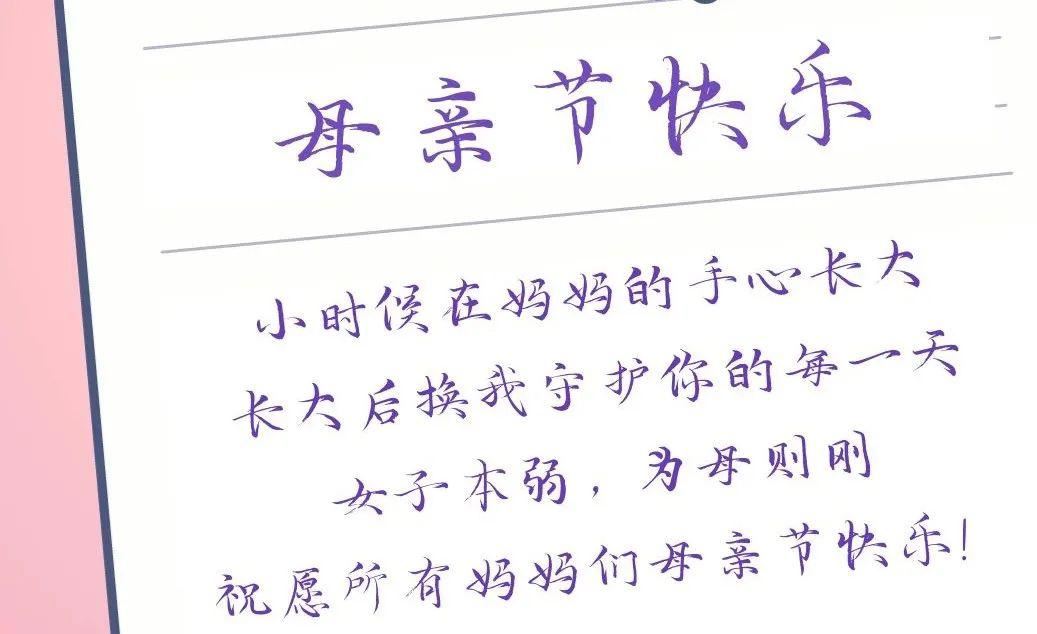 母亲节快乐
小时候在妈妈的手心长大
长大后换我守护你的每一天
女子本弱，为母则刚
祝愿所有妈妈们母亲节快乐!